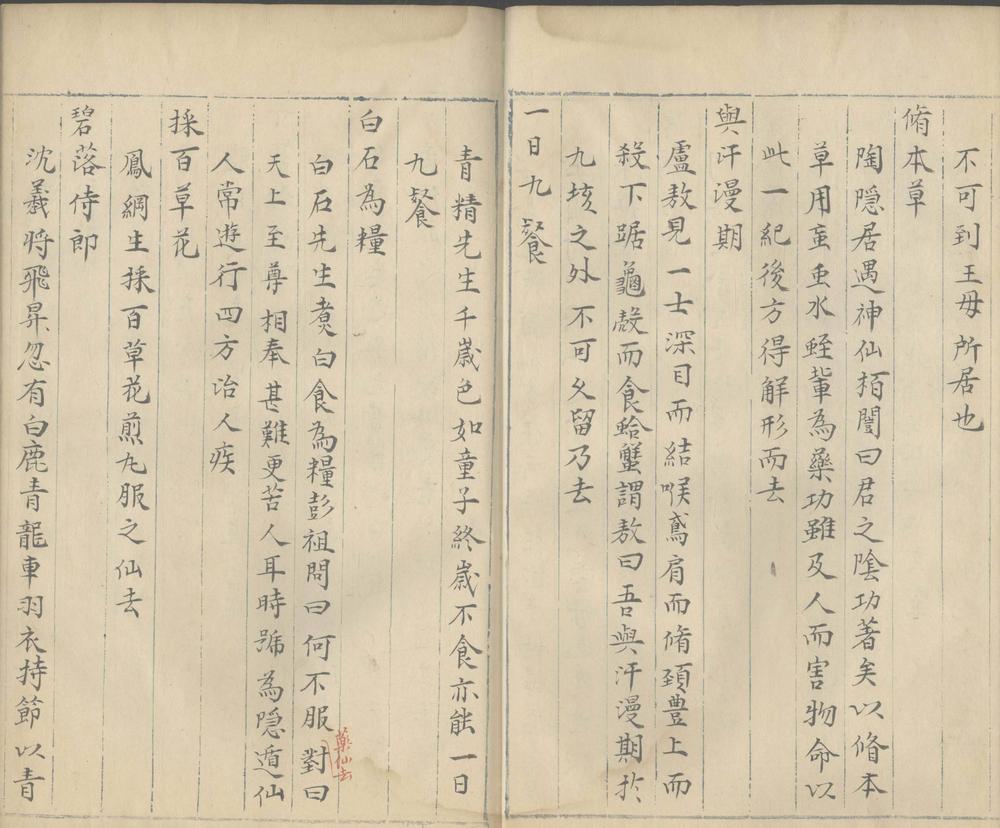 不可到王母所居也
脩本草
陶隠居遇神仙栢闓曰君之隂功著矣以脩本
草用䖟虫水蛭軰為藥功雖及人而害物命以
此一紀後方得解形而去
與汗漫期
盧敖見一士深目而結喉鳶肩而脩頚豊上而
殺下踞龜殼而食蛤蟹謂敖曰吾與汗漫期於
九垓之外不可久留乃去
一日九餐
青精先生千嵗色如童子終嵗不食亦能一日
九餐
白石為糧
白石先生煑白食為糧彭祖問曰何不服對曰
藥仙去
天上至尊相奉甚難更苦人耳時號為隠遁仙
人常遊行四方治人疾
採百草花
鳳綱生採百草花煎九服之仙去
碧落侍郎
沈羲將飛昇忽有白鹿青龍車羽衣持節以青